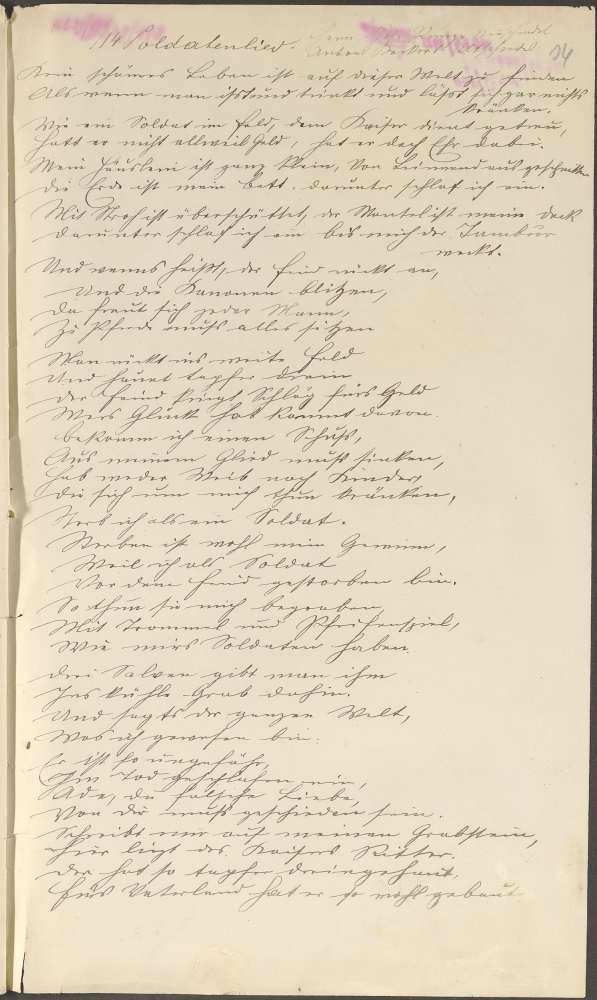 114 Soldatenlied.
94
Kein schöneres Leben ist auf dieser Welt zu finden
Als wenn man isst und trinkt und lässt sich gar nichts
kränken.
Wie ein Soldat im Feld, dem Kaiser dient getreu,
Hatt er nicht allweil Geld, hat er doch Ehr dabei.
Mein Häuslein ist ganz klein, Von Leinwand ausgeschnitten
die Erde ist mein Bett. darunter schlaf ich ein.
Mit Stroh ist überschüttet, der Mantel ist meine Deck
darunter schlaf ich ein bis mich der Tambur
weckt.
Und wenns heisst, der Feind rückt an,
Und die Kanonen blitzen,
Da freut sich jeder Mann,
Zu Pferde muss alles sitzen
Man rückt ins weite Feld
Und hauet tapfer drein
Der Feind kriegt Schläg fürs Geld
Wers Glück hat kommt davon.
bekomm ich einen Schuss,
Aus meinem Glied muss sinken,
Hab weder Weib noch Kinder,
Die sich um mich thun kränken,
Sterb ich als ein Soldat.
Sterben ist wohl mein Gewinn,
Weil ich als Soldat
Vor dem Feind gestorben bin.
So thun sie mich begraben,
Mit Trommel und Pfeifenspiel,
Wie mirs Soldaten haben.
Drei Salven gibt man ihm
Ins kühle Grab dahin.
Und sagts der ganzen Welt,
Was ich gewesen bin.
Er ist so ungefähr,
Im Tod geschlafen ein,
Ade, du falsche Liebe,
Von dir muss geschieden sein.
Schreibt mir auf meinen Grabstein,
Hier liegt des Kaisers Ritter.
Der hat so tapfer dreingehaut.
Fürs Vaterland hat er so wohl gebaut.